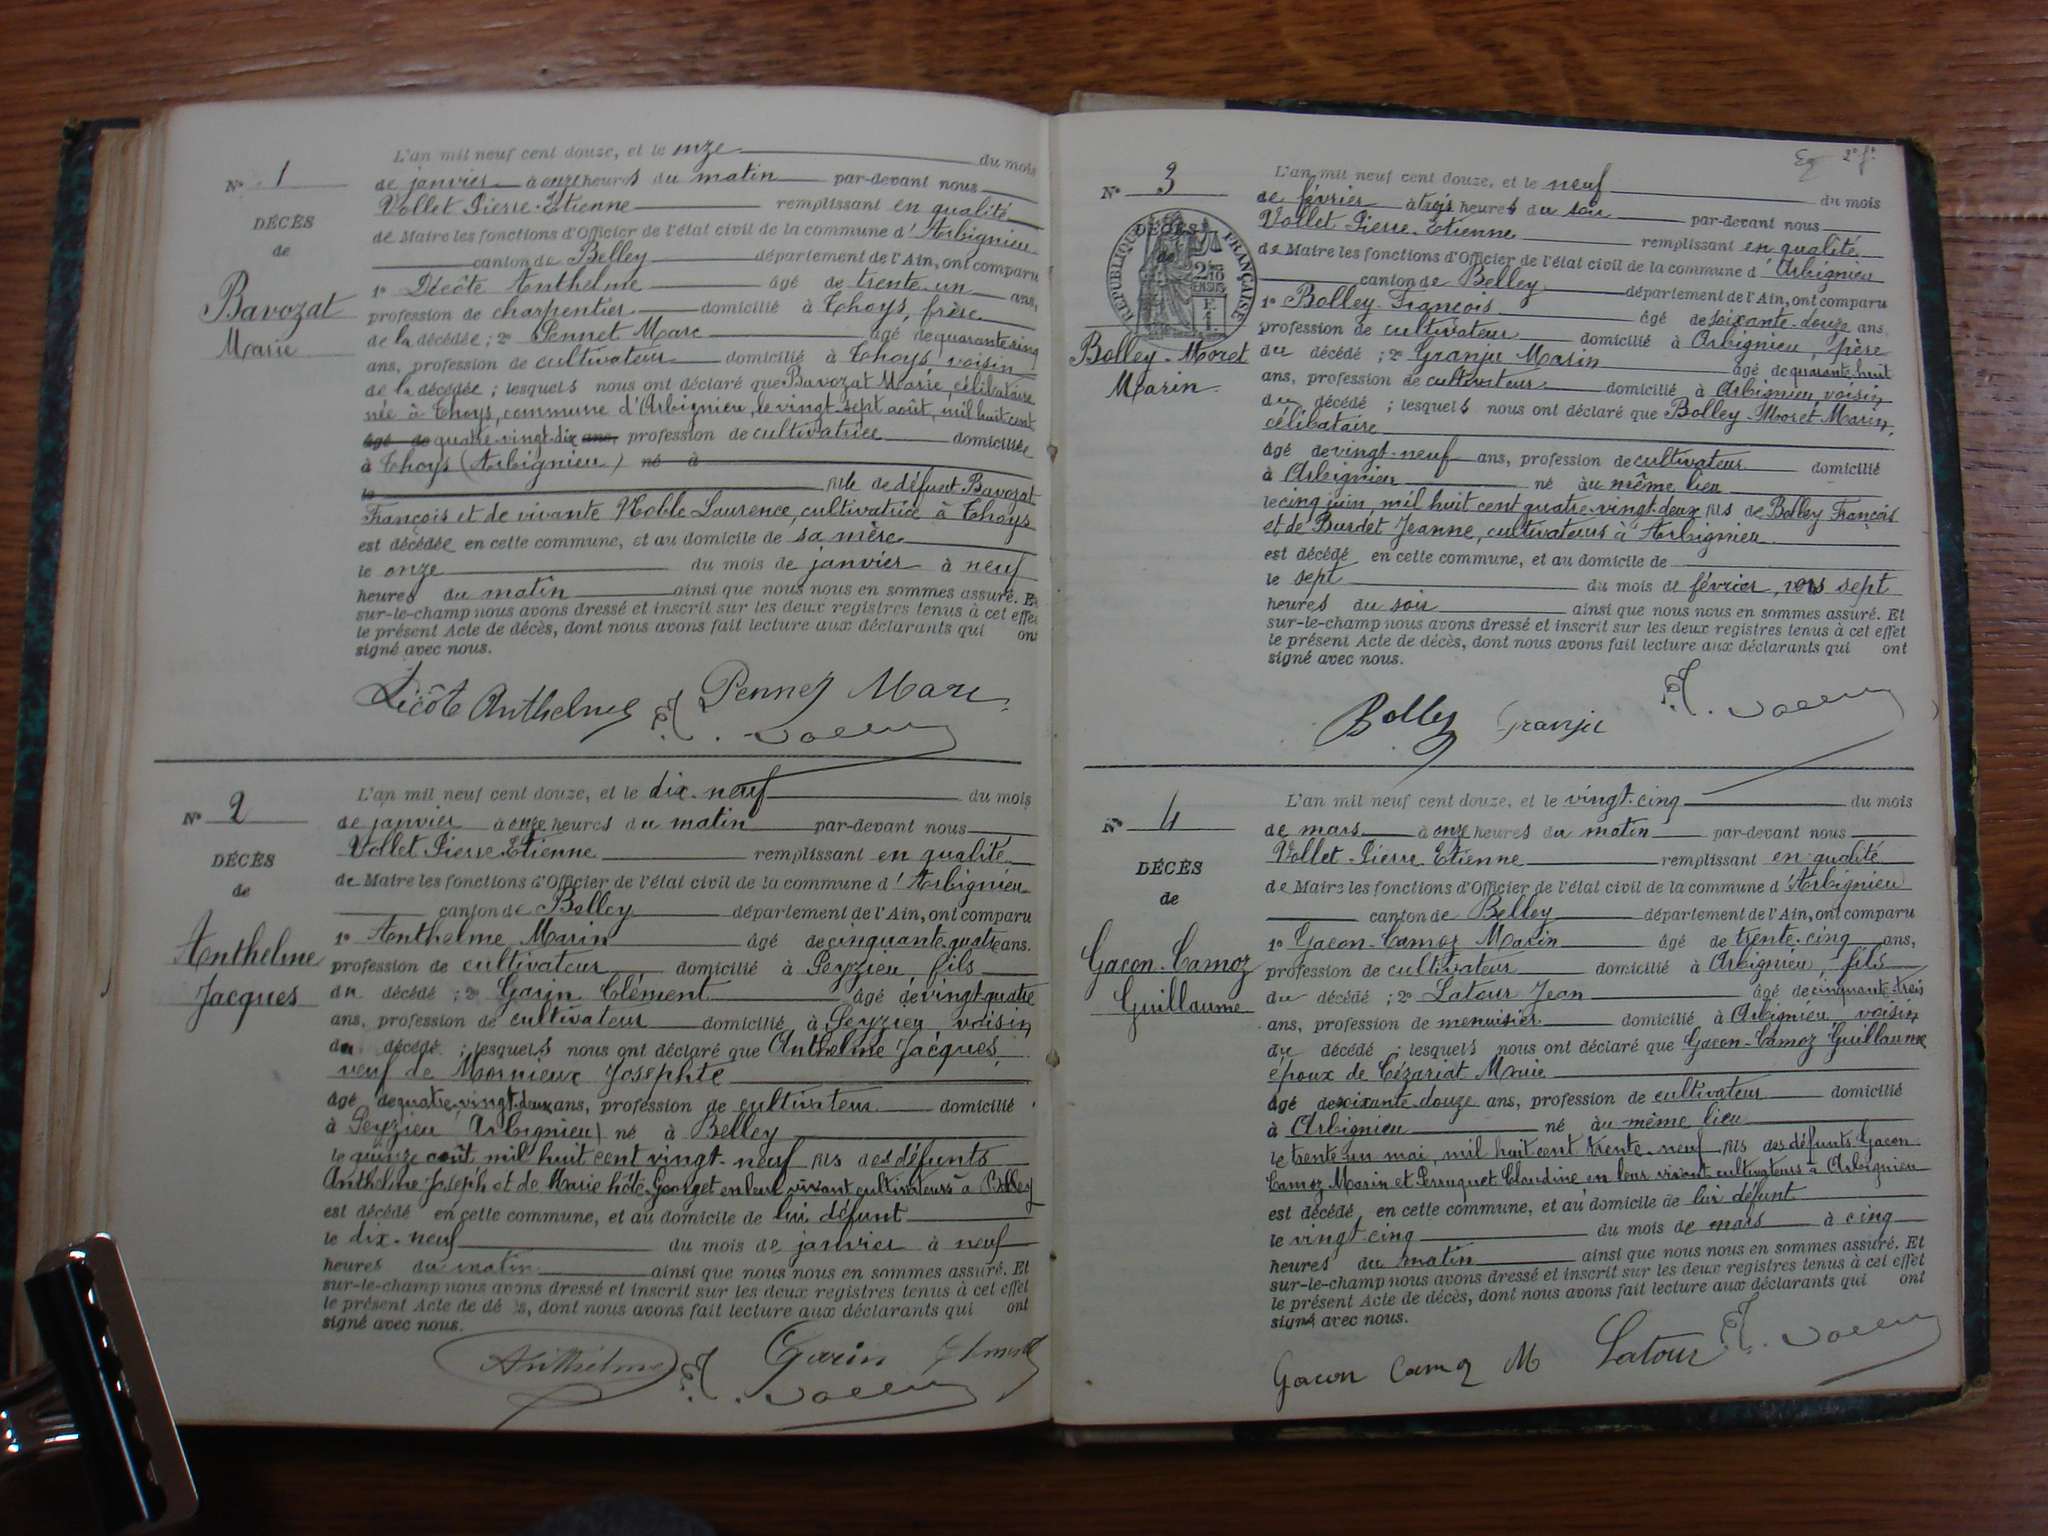 N° 1
DÉCÈS
de
Bavozat
Marie
L'an mil neuf cent douze, et le onze du mois
de janvier à onze heures du matin par-devant nous
Vollet Pierre-Etienne remplissant en qualité
de Maire les fonctions d'Officier de l'état civil de la commune d'Arbignieu
canton de Belley département de l'Ain, ont comparu
1° Décôte Anthelme âgé de trente-un ans,
profession de charpentier domicilié à Thoys, frère
de la décédée ; 2° Pennet Marc âgé de quarante cinq
ans, profession de cultivateur domicilié à Thoys, voisin
de la décédée ; lesquels nous ont déclaré que Bavozat Marie, célibataire
née à Thoys, commune d'Arbignieu, le vingt-sept août, mil huit cent
âgé de quatre-vingt-dix ans, profession de cultivatrice domiciliée
à Thoys (Arbignieu) né à
le fille de défunt Bavozat
François et de vivante Noble Laurence, cultivatrice à Thoys
est décédée en cette commune, et au domicile de sa mère
le onze du mois de janvier à neuf
heures du matin ainsi que nous nous en sommes assuré. Et
sur-le-champ nous avons dressé et inscrit sur les deux registres tenus à cet effet
le présent Acte de décès, dont nous avons fait lecture aux déclarants qui ont
signé avec nous.
Dicôte Anthelme Pennet Marc
N° 2
DÉCÈS
de
Anthelme
Jacques
L'an mil neuf cent douze, et le dix-neuf du mois
de janvier à onze heures du matin par-devant nous
Vollet Pierre-Etienne remplissant en qualité
de Maire les fonctions d'Officier de l'état civil de la commune d'Arbignieu
canton de Belley département de l'Ain, ont comparu
1° Anthelme Marin âgé de cinquante-quatre ans.
profession de cultivateur domicilié à Peyzieu, fils
du décédé ; 2° Garin Clément âgé de vingt-quatre
ans, profession de cultivateur domicilié à Peyzieu, voisin
du décédé ; lesquels nous ont déclaré que Anthelme Jacques,
veuf de Mornieux Josephte
âgé de quatre-vingt-deux ans, profession de cultivateur domicilié
à Peyzieu (Arbignieu) né à Belley
le quinze août mil huit cent vingt-neuf fils des défunts
Anthelme Joseph et de Marie hôte-Georget en leur vivant cultivateurs à Belley
est décédé en cette commune, et au domicile de lui défunt
le dix-neuf du mois de janvier à neuf
heures du matin ainsi que nous nous en sommes assuré. Et
sur-le-champ nous avons dressé et inscrit sur les deux registres tenus à cet effet
le présent Acte de décès, dont nous avons fait lecture aux déclarants qui ont
signé avec nous.
Anthelme Garin
2e ft
N° 3
DÉCÈS
de
RÉPUBLIQUE FRANÇAISE
Bolley-Moret
Marin
L'an mil neuf cent douze, et le neuf du mois
de février à trois heures du soir par-devant nous
Vollet Pierre-Etienne remplissant en qualité
de Maire les fonctions d'Officier de l'état civil de la commune d'Arbignieu
canton de Belley département de l'Ain, ont comparu
1° Bolley François âgé de soixante-douze ans,
profession de cultivateur domicilié à Arbignieu, père
du décédé ; 2° Granju Marin âgé de quarante huit
ans, profession de cultivateur domicilié à Arbignieu, voisin
du décédé ; lesquels nous ont déclaré que Bolley-Moret Marin,
célibataire
âgé de vingt-neuf ans, profession de cultivateur domicilié
à Arbignieu né au même lieu
le cinq juin, mil huit cent quatre-vingt-deux fils de Bolley François
et de Burdet Jeanne, cultivateurs à Arbignieu
est décédé en cette commune, et au domicile de
le sept du mois de février, vers sept
heures du soir ainsi que nous nous en sommes assuré. Et
sur-le-champ nous avons dressé et inscrit sur les deux registres tenus à cet effet
le présent Acte de décès, dont nous avons fait lecture aux déclarants qui ont
signé avec nous.
Bolley Granju
N° 4
DÉCÈS
de
Gacon-Camoz
Guillaume
L'an mil neuf cent douze, et le vingt-cinq du mois
de mars à onze heures du matin par-devant nous
Vollet Pierre Etienne remplissant en qualité
de Maire les fonctions d'Officier de l'état civil de la commune d'Arbignieu
canton de Belley département de l'Ain, ont comparu
1° Gacon-Camoz Marin âgé de trente-cinq ans,
profession de cultivateur domicilié à Arbignieu, fils
du décédé ; 2° Latour Jean âgé de cinquante-trois
ans, profession de menuisier domicilié à Arbignieu, voisin
du décédé ; lesquels nous ont déclaré que Gacon-Camoz Guillaume
époux de Cézariat Marie
âgé de soixante douze ans, profession de cultivateur domicilié
à Arbignieu né au même lieu
le trente un mai, mil huit cent trente-neuf fils des défunts Gacon
Camoz Marin et Perruquet Claudine en leur vivant cultivateurs à Arbignieu
est décédé en cette commune, et au domicile de lui défunt
le vingt-cinq du mois de mars à cinq
heures du matin ainsi que nous nous en sommes assuré. Et
sur-le-champ nous avons dressé et inscrit sur les deux registres tenus à cet effet
le présent Acte de décès, dont nous avons fait lecture aux déclarants qui ont
signé avec nous.
Gacon Camoz M Latour